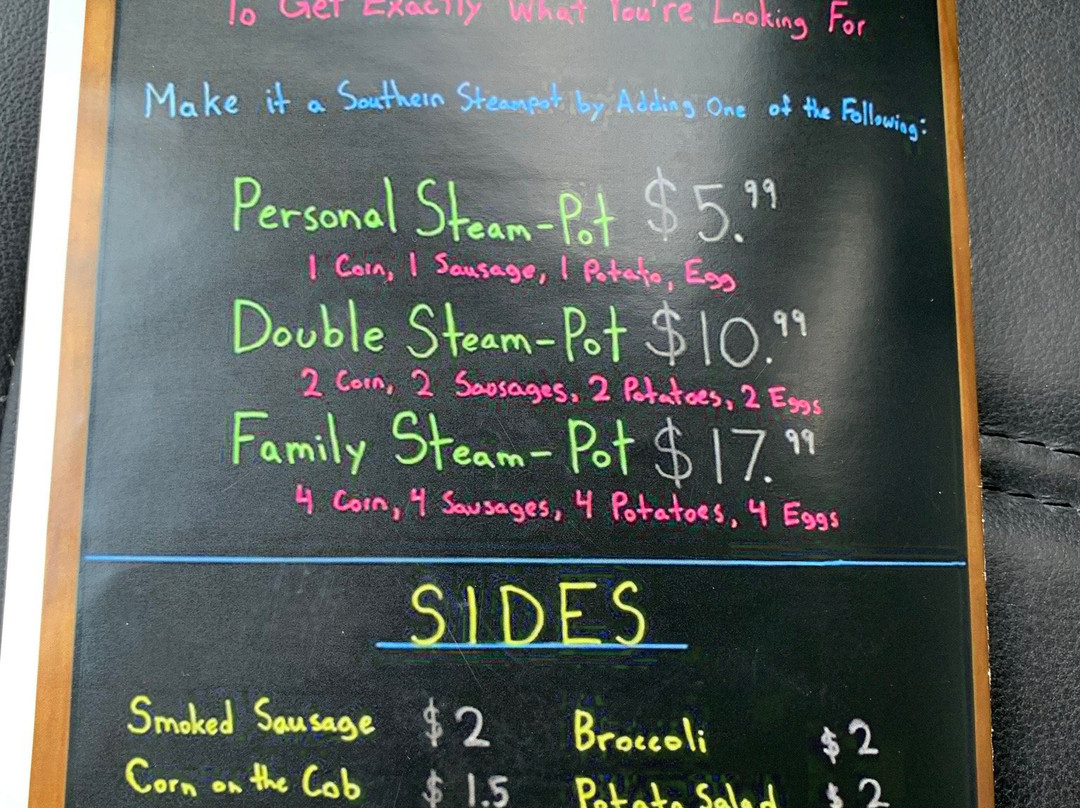 To Get Exactly What You're Looking For
Make it a Southern Steampot by Adding One of the Following:
Personal Steam-Pot $5.99
1 Corn, 1 Sausage, 1 Potato, Egg
Double Steam-Pot $10.99
2 Corn, 2 Sausages, 2 Potatoes, 2 Eggs
Family Steam-Pot $17.99
4 Corn, 4 Sausages, 4 Potatoes, 4 Eggs
SIDES
Smoked Sausage $2 Broccoli $2
Corn on the Cob $1.5 Potato Salad $2